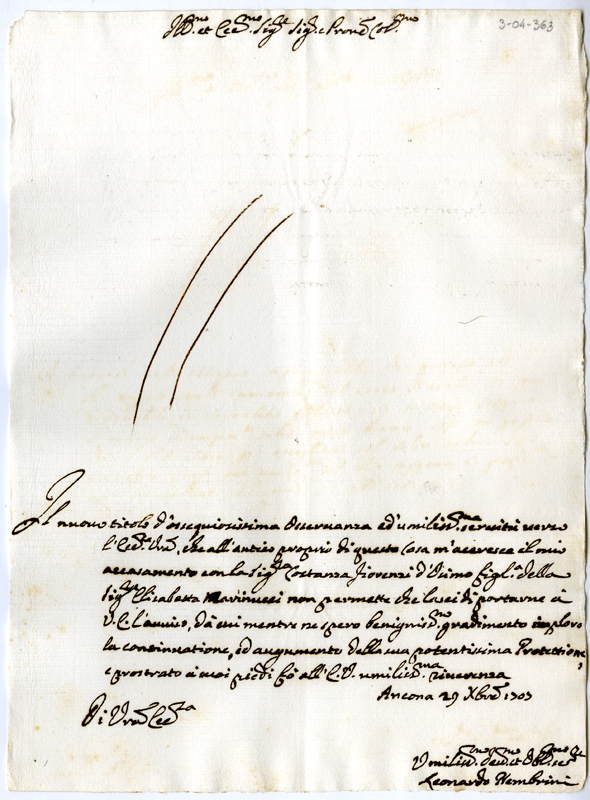 3-04-363
Ill.mo et Ecc.mo Sig.re Sig.e Pron.e Col.mo
Il nuovo titolo d'ossequiosissima osservanza ed umiliss.ma servitù verso
l'Ecc.a Vra, che all'antico proprio di questa Casa m'accresce il mio
accasamento con la Sig.ra Costanza Fiorenzi d'Osimo figl.a della
Sig.ra Elisabetta Marinucci non permette che lasci di portarne à
V.E. l'aviso, dà cui mentre ne spero benigniss.mo gradimento imploro
la continuatione, ed augumento della sua potentissima Protettione,
e prostrato à suoi piedi fò all'E.V. umiliss.ma riverenza
Ancona 29 Xbre 1703
Di Vra Ecc.za
Umiliss.mo Dev.mo et Obl.mo ser.re
Leonardo Nembrini